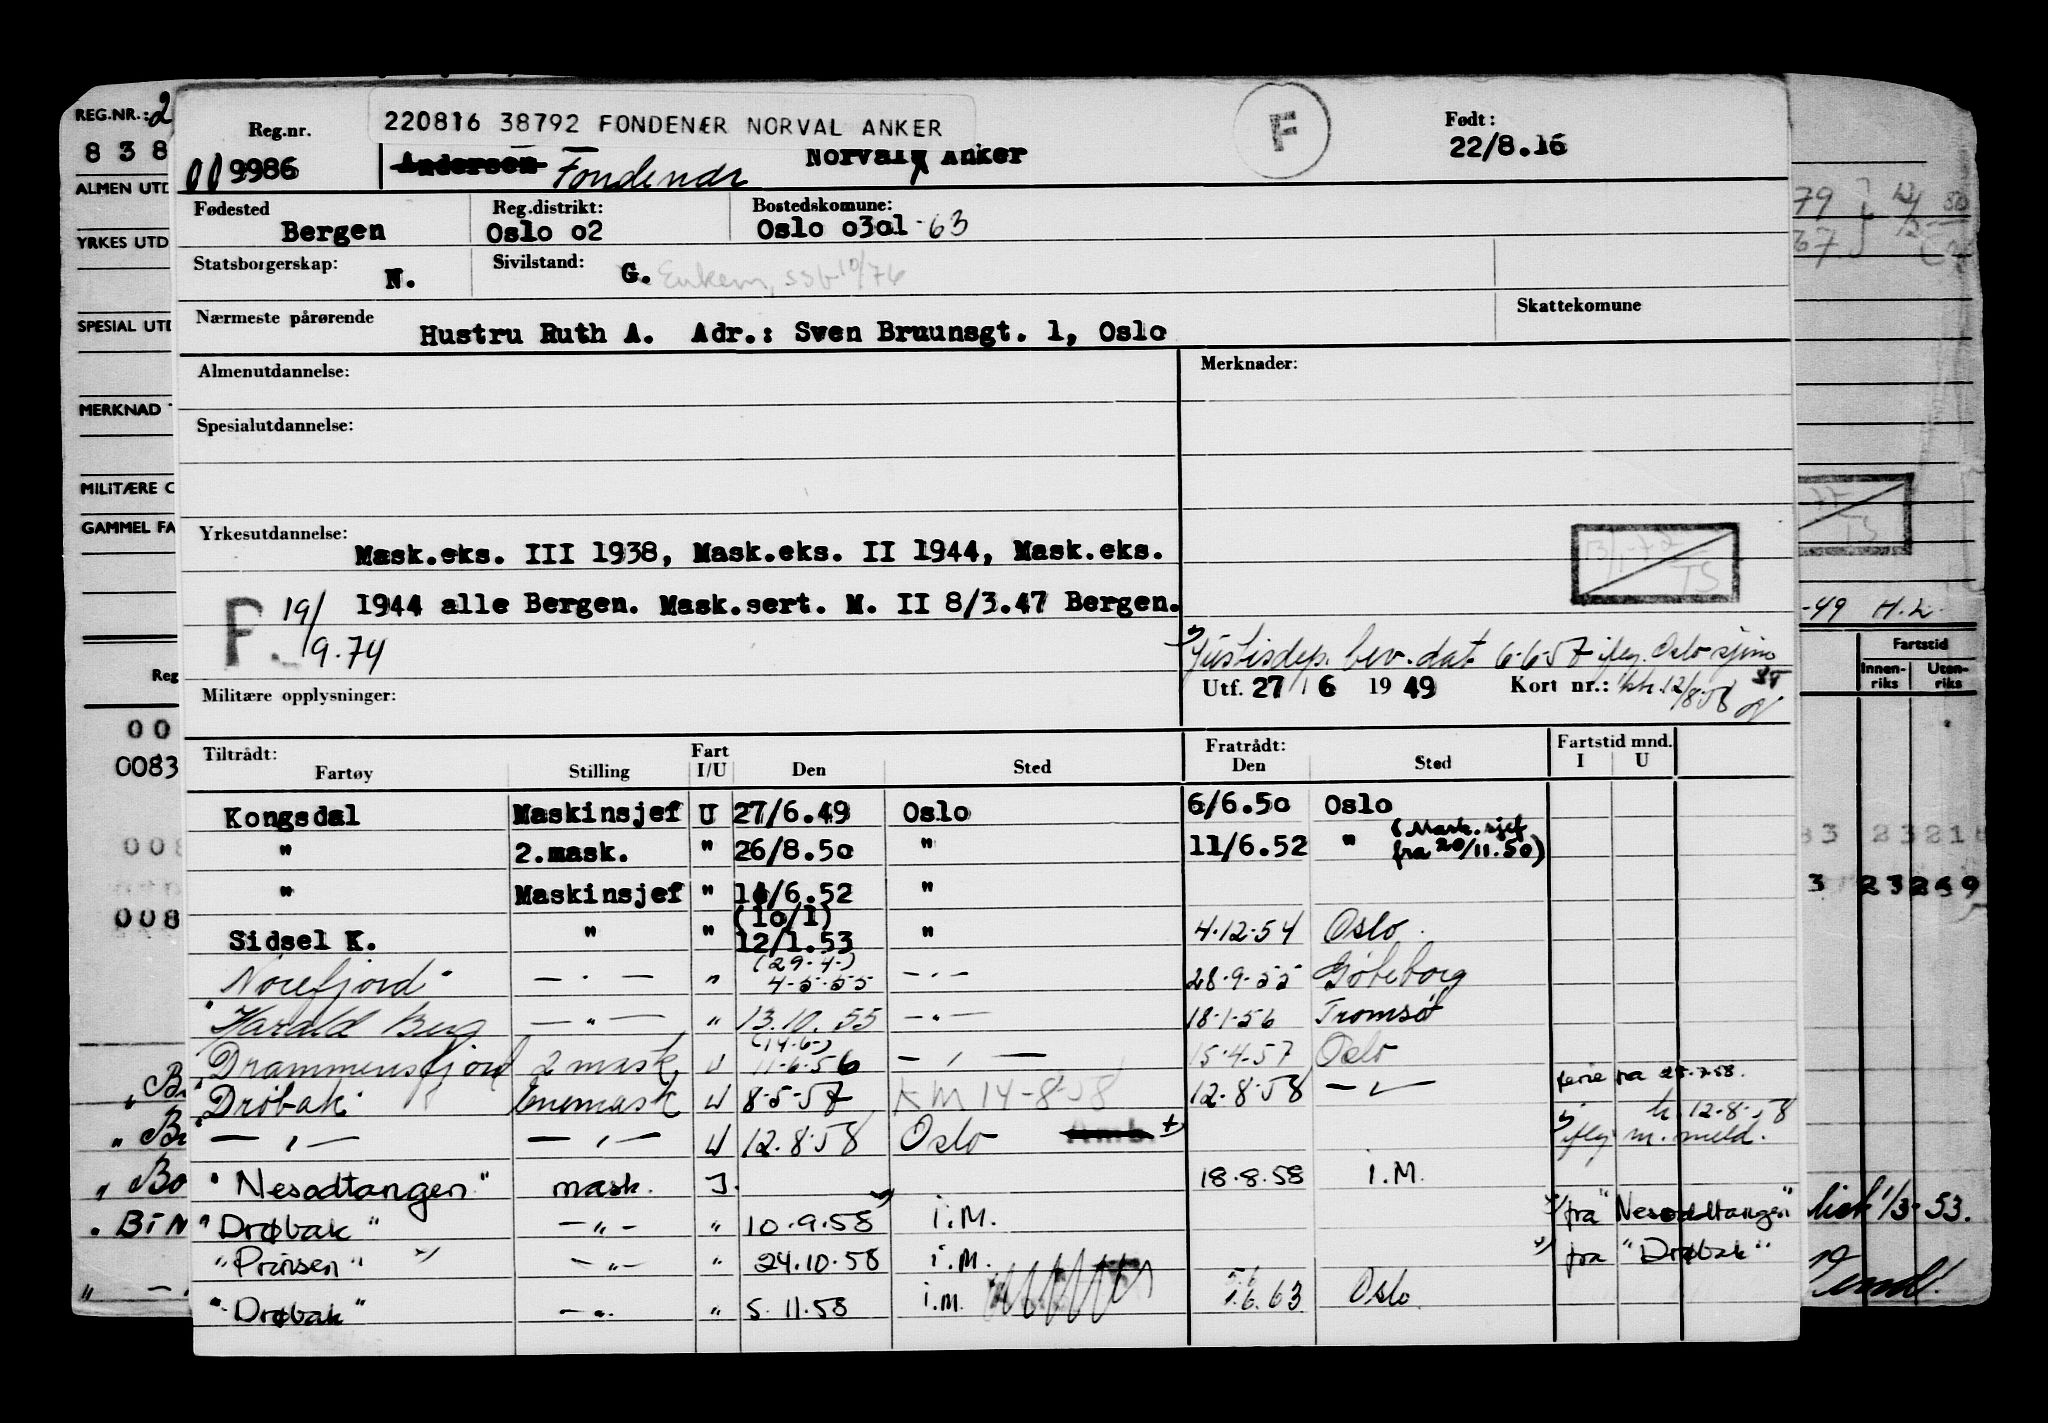 Reg.nr. 220816 38792 FONDENÆR NORVAL ANKER F Født:
009986 Andersen Fondenær Norvald Anker 22/8.16
Fødested Bergen Reg.distrikt: Oslo o2 Bostedskomune: Oslo o3o1-63
Statsborgerskap: N. Sivilstand: G. Enkem, ssb 10/76
Nærmeste pårørende Hustru Ruth A. Adr.: Sven Bruunsgt. 1, Oslo Skattekomune
Almenutdannelse: Merknader:
Spesialutdannelse:
Yrkesutdannelse: Mask.eks. III 1938, Mask.eks. II 1944, Mask.eks.
1944 alle Bergen. Mask.sert. M. II 8/3.47 Bergen.
F 19/9.74
Justisdep. bev. dat. 6-6-57 iflg. Oslo sjømo
Militære opplysninger: Utf. 27/6 1949 Kort nr.: 12/8-58
Tiltrådt: Fart Fratrådt: Fartstid mnd.
Fartøy Stilling I/U Den Sted Den Sted I U
Kongsdal Maskinsjef U 27/6.49 Oslo 6/6.5o Oslo
" 2.mask. " 26/8.5o " 11/6.52 " (Mask.sjef fra 20/11.50)
" Maskinsjef " 11/6.52 "
Sidsel K. " " (1o/1) 12/1.53 " 4.12-54 Oslo.
"Norefjord" — . — " (29.4-) 4-5-55 — . — 28-9-55 Gøteborg
"Harald Berg — " — " 13.10.55 — " — 18-1-56 Tromsø
"Drammensfjord 2 mask U (14.6-) 11-6-56 — , — 15-4-57 Oslo
"Drøbak. Enemask U 8-5-57 KM 14-8-58 12-8-58 — , — ferie fra 28.7.58.
— , — — , — U 12.8.58 Oslo Amb. k. 12-8-58 iflg m. meld.
"Nesodtangen" mask. I. 18.8.58 i.M.
"Drøbak" — " — " 10.9.58 i.M. fra "Nesoddtangen"
"Prinsen" — " — " 24.10.58 i.M. fra "Drøbak"
"Drøbak" — " . " 5.11.58 i.M. 6.63 Oslo
REG.NR.: 2
8 3 8
ALMEN UTD
YRKES UTD
SPESIAL UTD
MERKNAD
MILITÆRE O
GAMMEL FA
Reg
00
0083
008
008
" Bo
. BIN
79
67
-49 H.L.
Fartstid
Innen-riks Uten-riks
1/3-53.